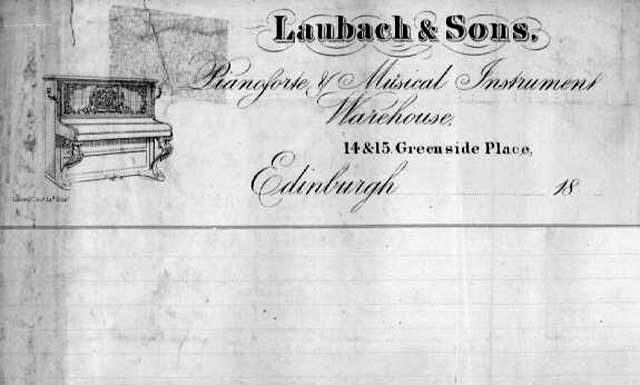 Laubach & Sons.
Pianoforte, & Musical Instrument
Warehouse,
14 & 15 Greenside Place,
Edinburgh 18